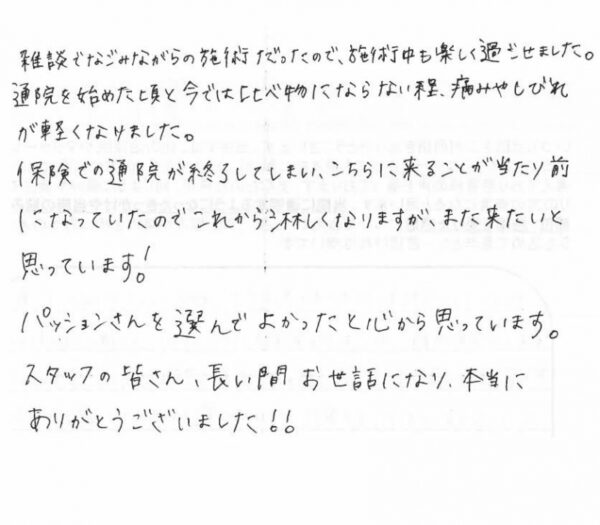 雑談でなごみながらの施術だったので、施術中も楽しく過ごせました。
通院を始めた頃と今では比べ物にならない程、痛みやしびれ
が軽くなりました。
保険での通院が終了してしまい、こちらに来ることが当たり前
になっていたのでこれから淋しくなりますが、また来たいと
思っています!
パッションさんを選んでよかったと心から思っています。
スタッフの皆さん、長い間お世話になり、本当に
ありがとうございました!!